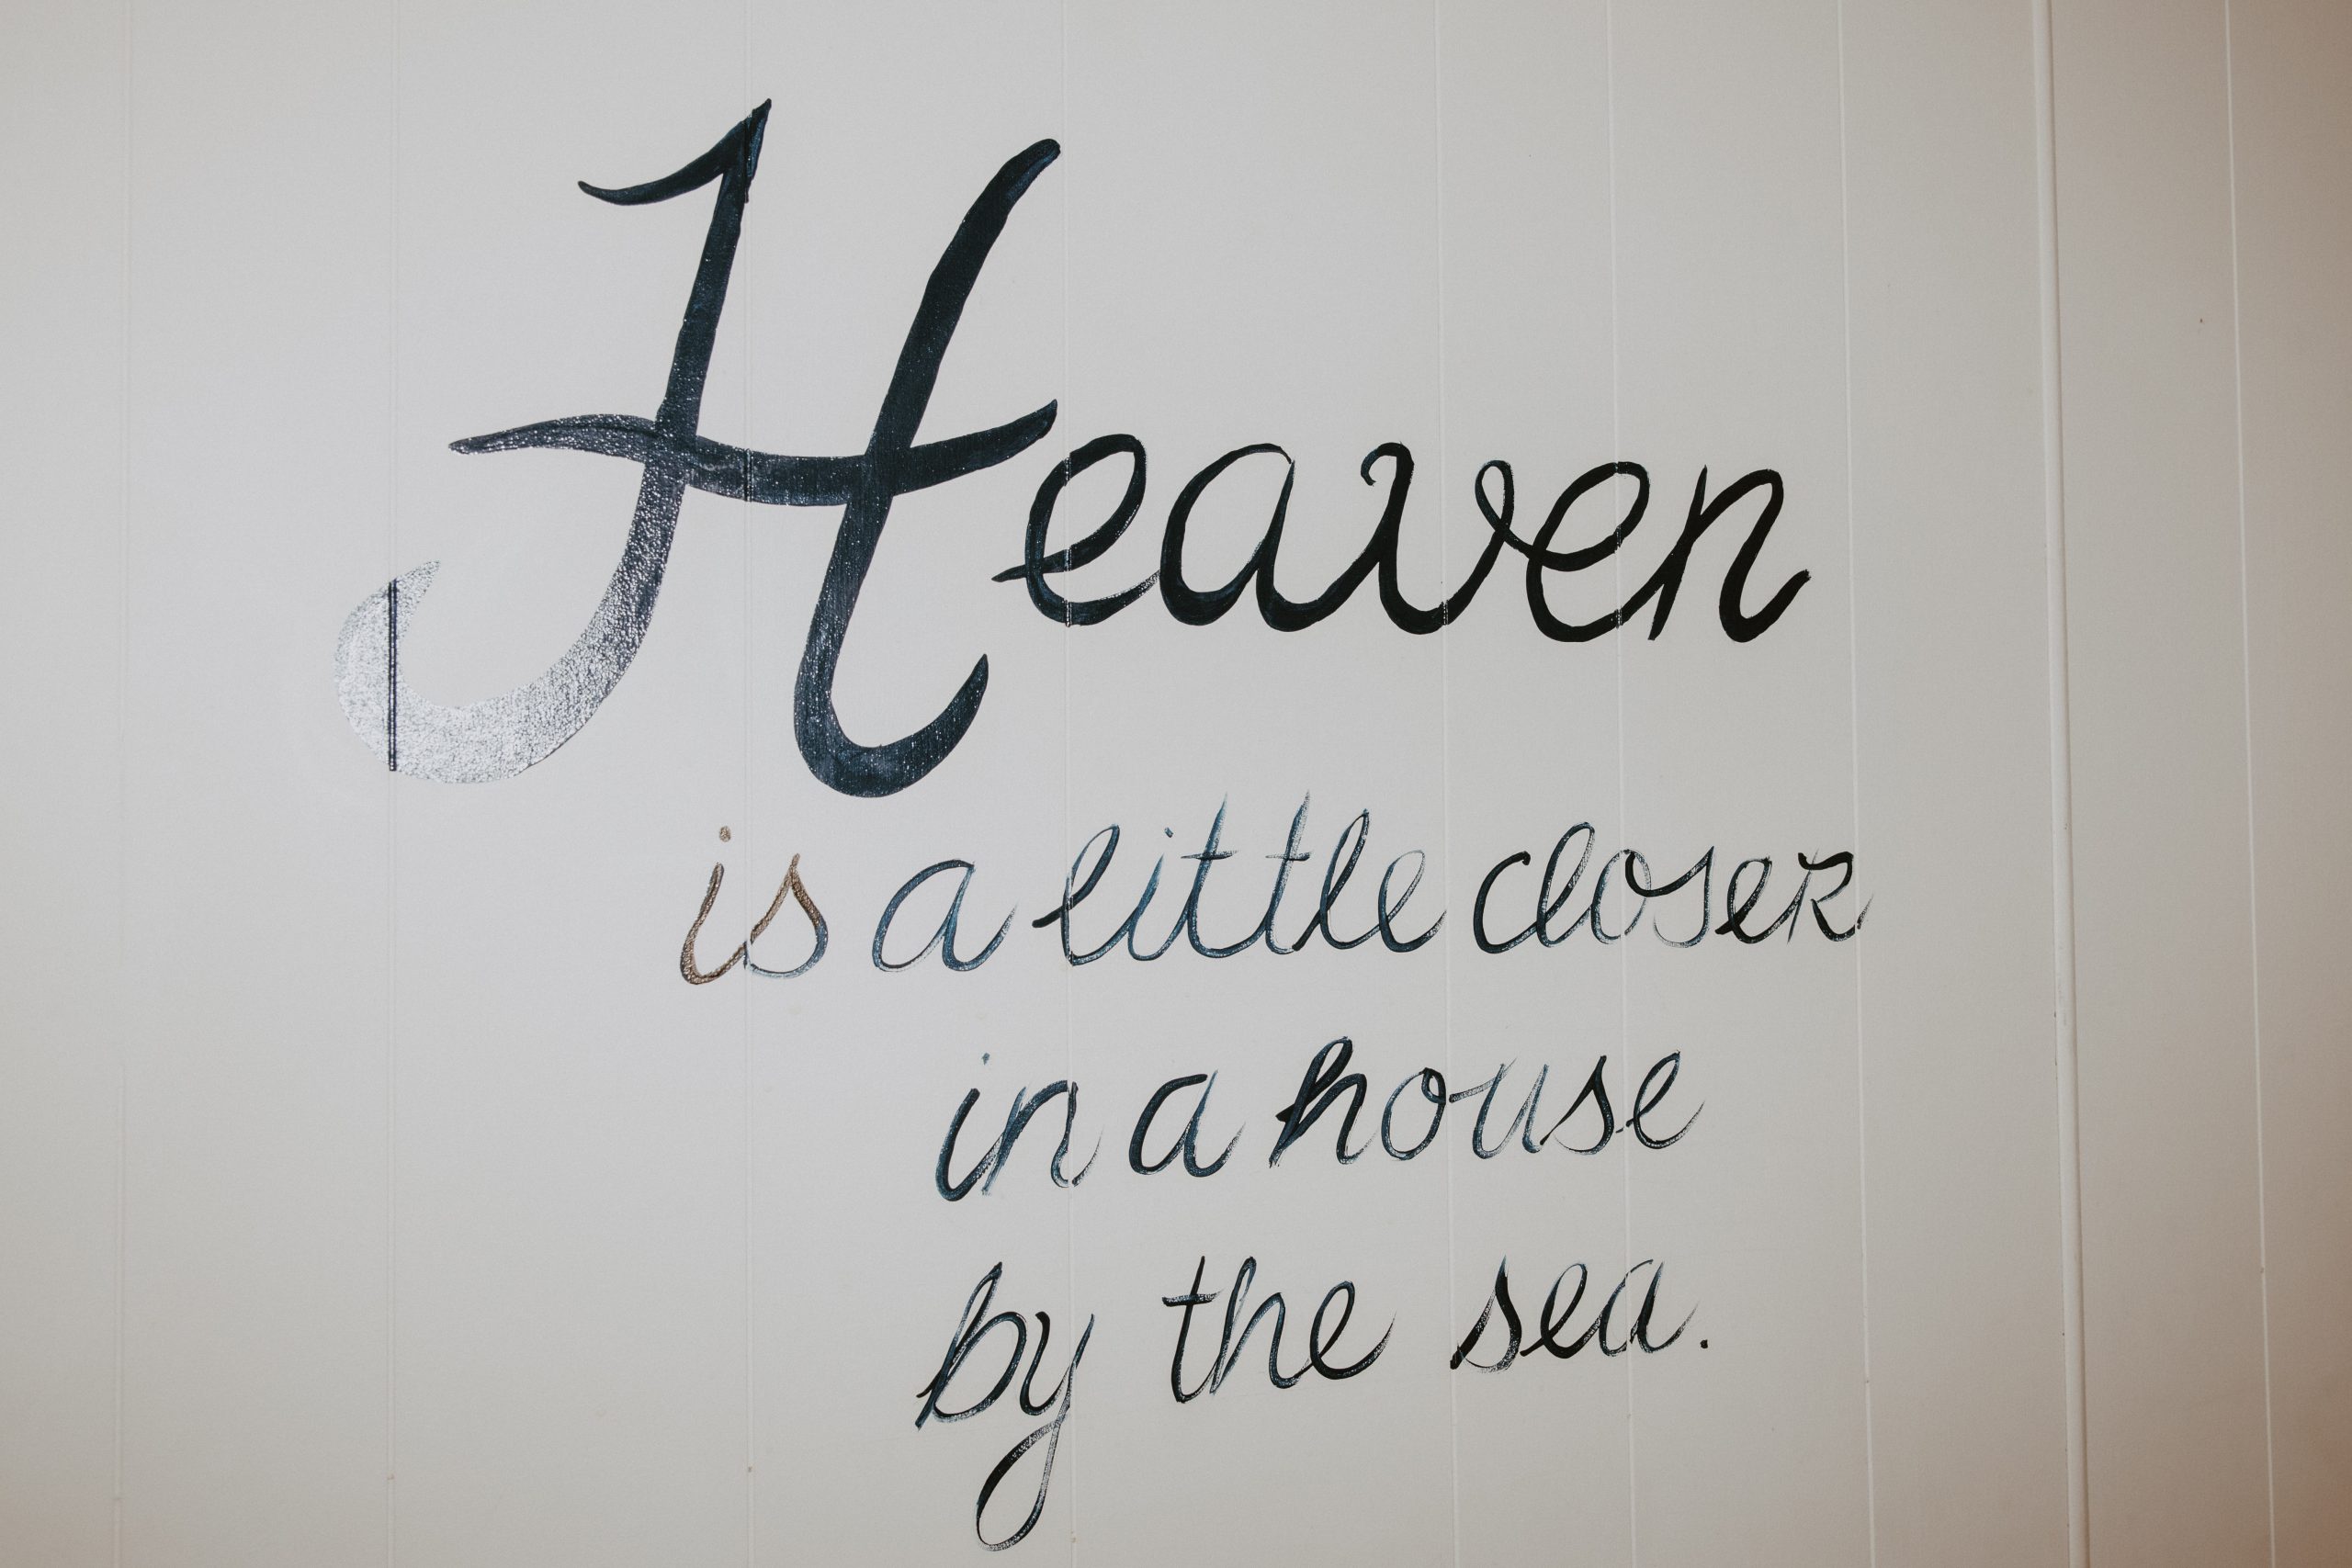 Heaven
is a little closer
in a house
by the sea.